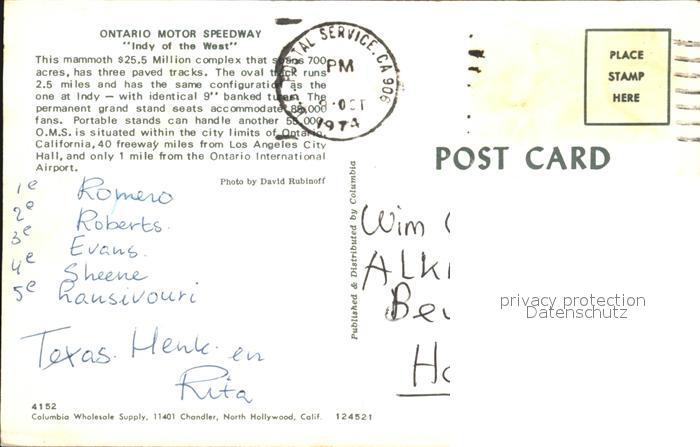 ONTARIO MOTOR SPEEDWAY
"Indy of the West"
This mammoth $25.5 Million complex that spans 700
acres, has three paved tracks. The oval track runs
2.5 miles and has the same configuration as the
one at Indy — with identical 9° banked turns. The
permanent grand stand seats accommodate 85,000
fans. Portable stands can handle another 55,000.
O.M.S. is situated within the city limits of Ontario,
California, 40 freeway miles from Los Angeles City
Hall, and only 1 mile from the Ontario International
Airport.
Photo by David Rubinoff
1e Romero
2e Roberts.
3e Evans.
4e Sheene
5e Lansivouri
Texas. Henk en
Rita
4152
Columbia Wholesale Supply, 11401 Chandler, North Hollywood, Calif. 124521
Published & Distributed by Columbia
POSTAL SERVICE, CA 906
PM
OCT
1974
PLACE
STAMP
HERE
POST CARD
Wim
ALK
Be
Ho
privacy protection
Datenschutz